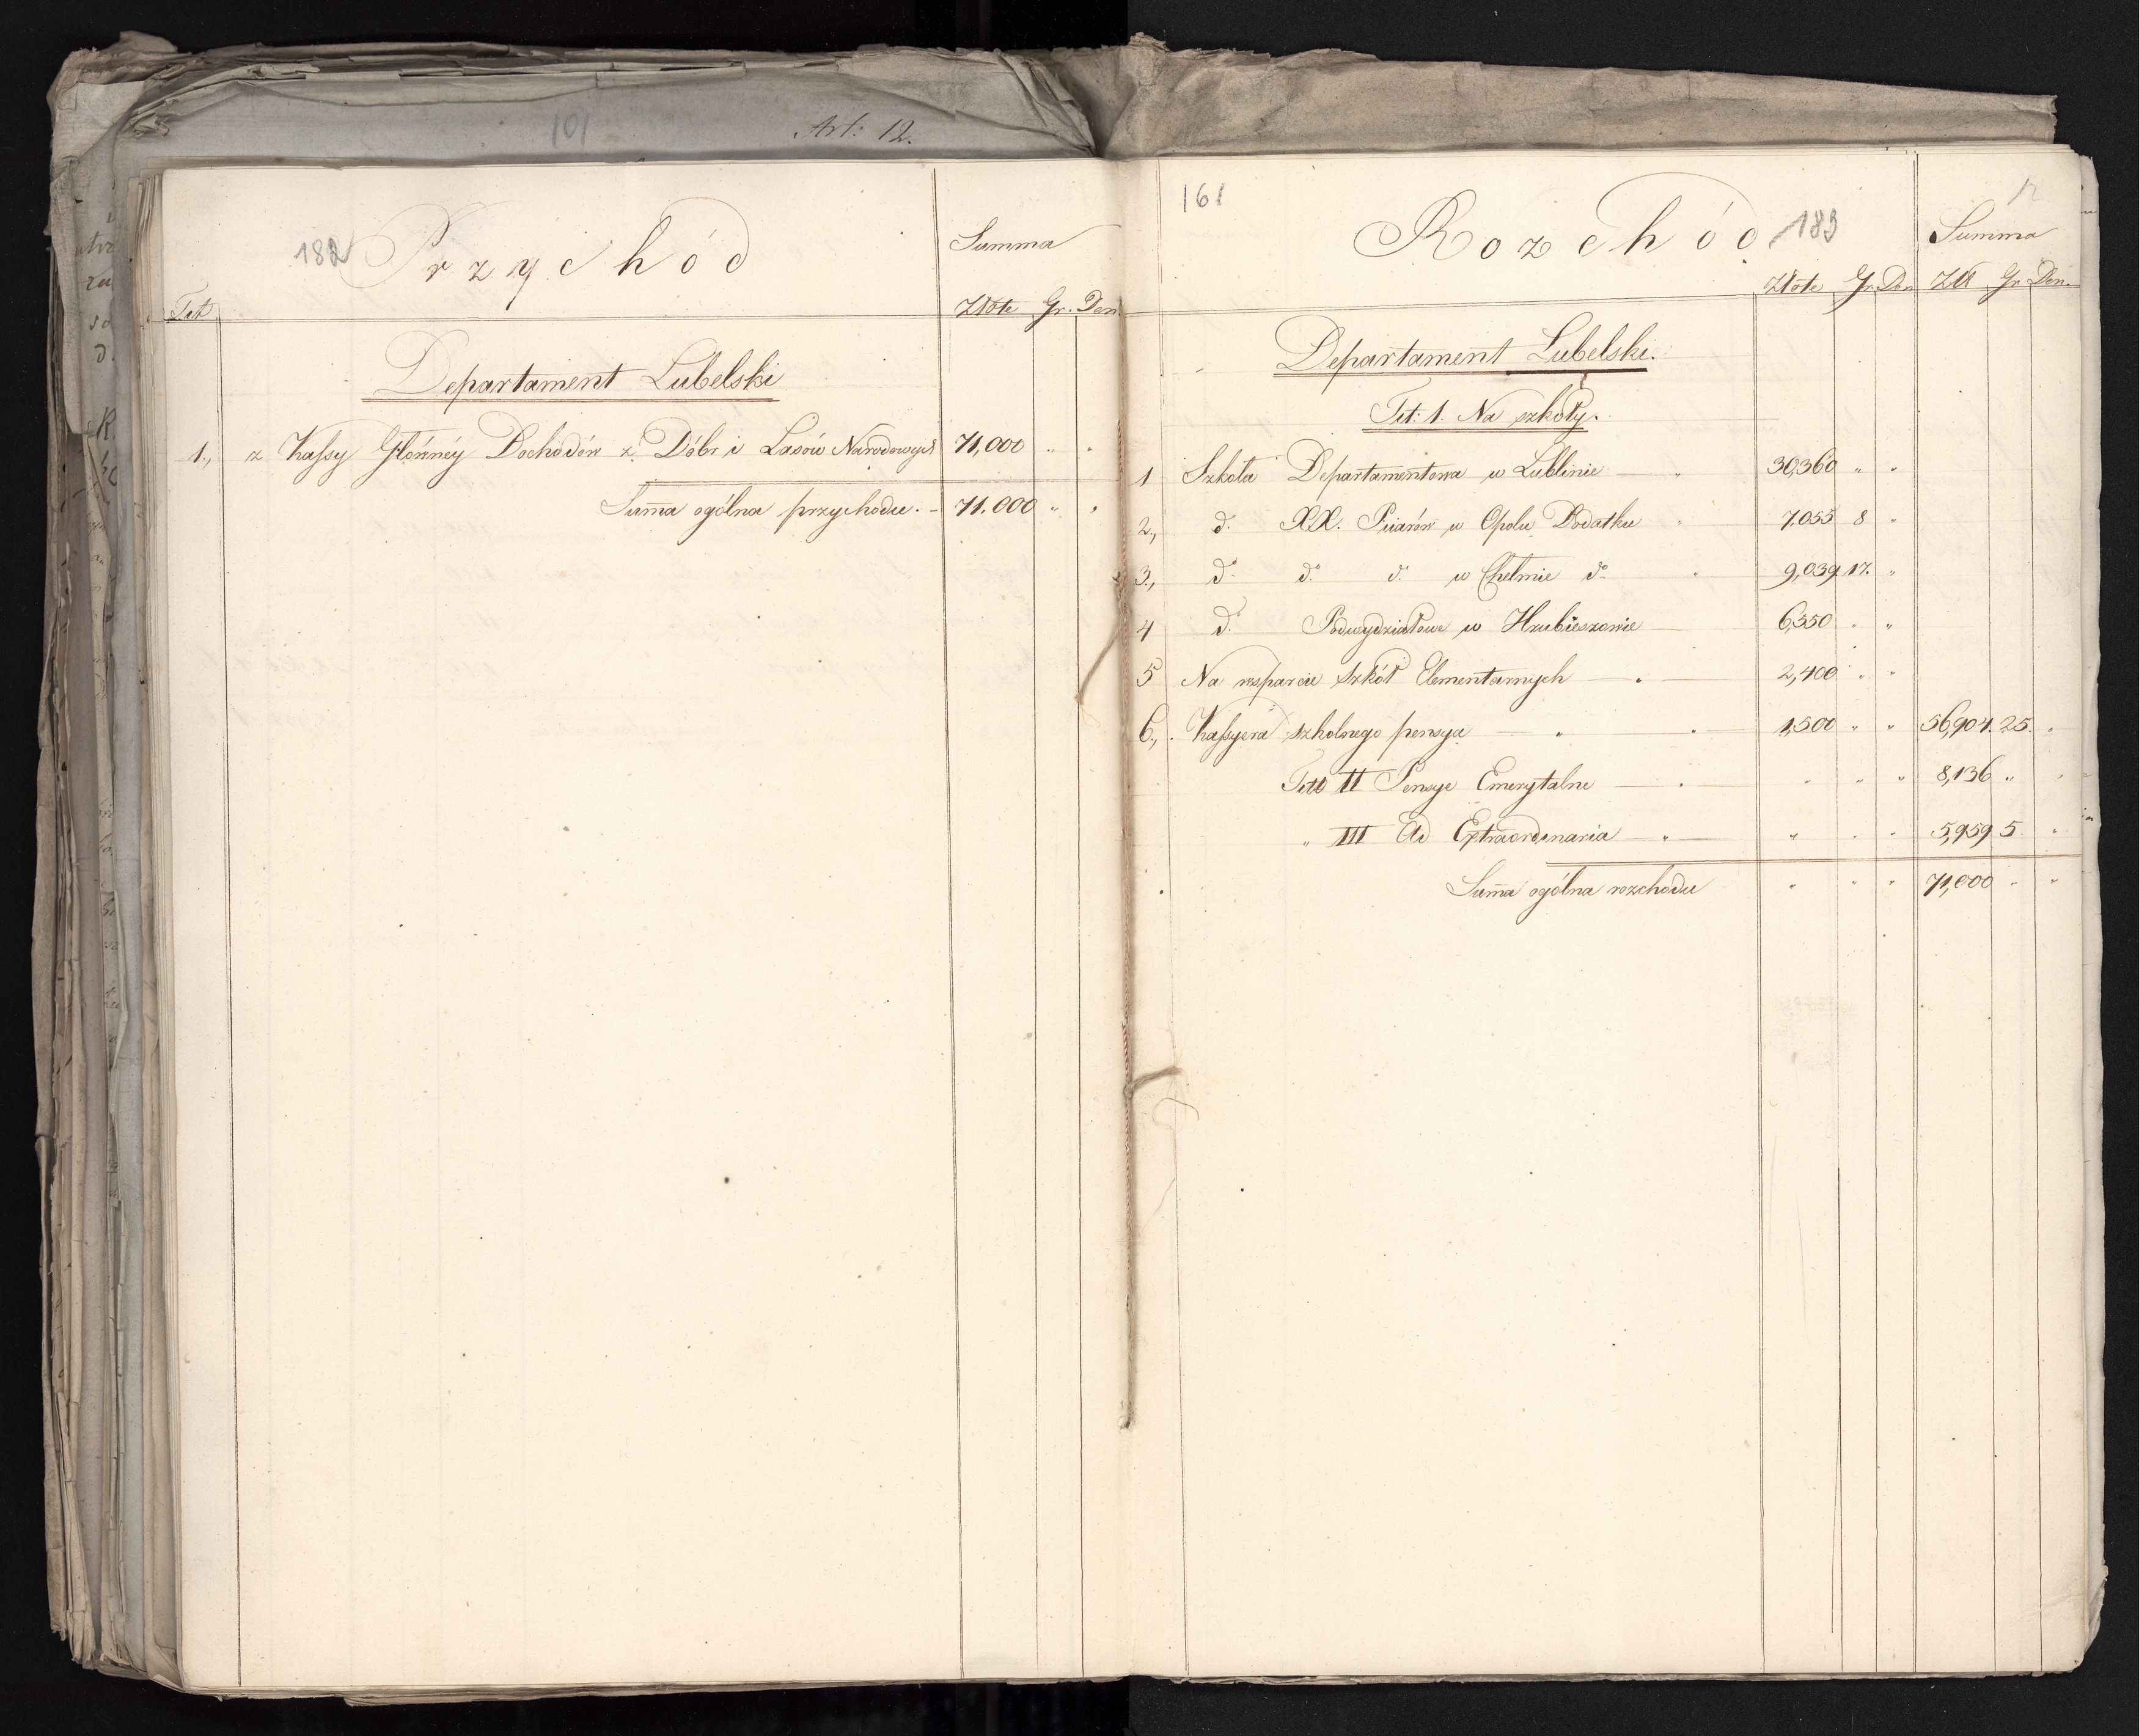 101 Art: 12.
182 Przychód Summa
Tit Złote Gr. Den.
Departament Lubelski
1., z Kassy Głównéy Dochodów z Dóbr i Lasów Narodowych 71,000 " "
Sum̄a ogólna przychodu. - 71.000 " "
161 Rozchód 183 Summa
Złote Gr Den Złł Gr Den.
Departament Lubelski.
Tit: 1. Na szkoły.
1 Szkoła Departamentowa w Lublinie — " 30,360 " "
2., d. XX. Piiarów w Opolu Dodatku " 7,055 8 "
3., do d. d. w Chełmie do 9,039 17. "
4 d. Podwydziałowe w Hrubieszowie — 6,350 " "
5 Na wsparcie szkół Elementarnych — " — 2,400 " "
6., Kassyera szkolnego pensya — " 1,500 " " 56,904. 25. "
Titt II Pensye Emerytalne — " — " " " 8,136 " "
" III Ad Extraordinaria — " — " " " 5,959 5. "
Sum̄a ogólna rozchodu " " " 71,000 " "